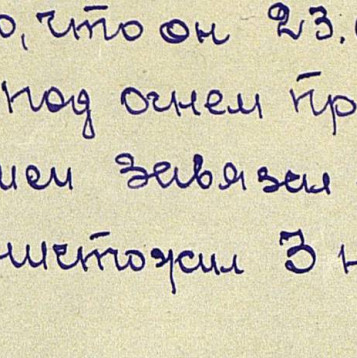 о, что он 23.
под огнем пр
ием завязал
ничтожил 3 н